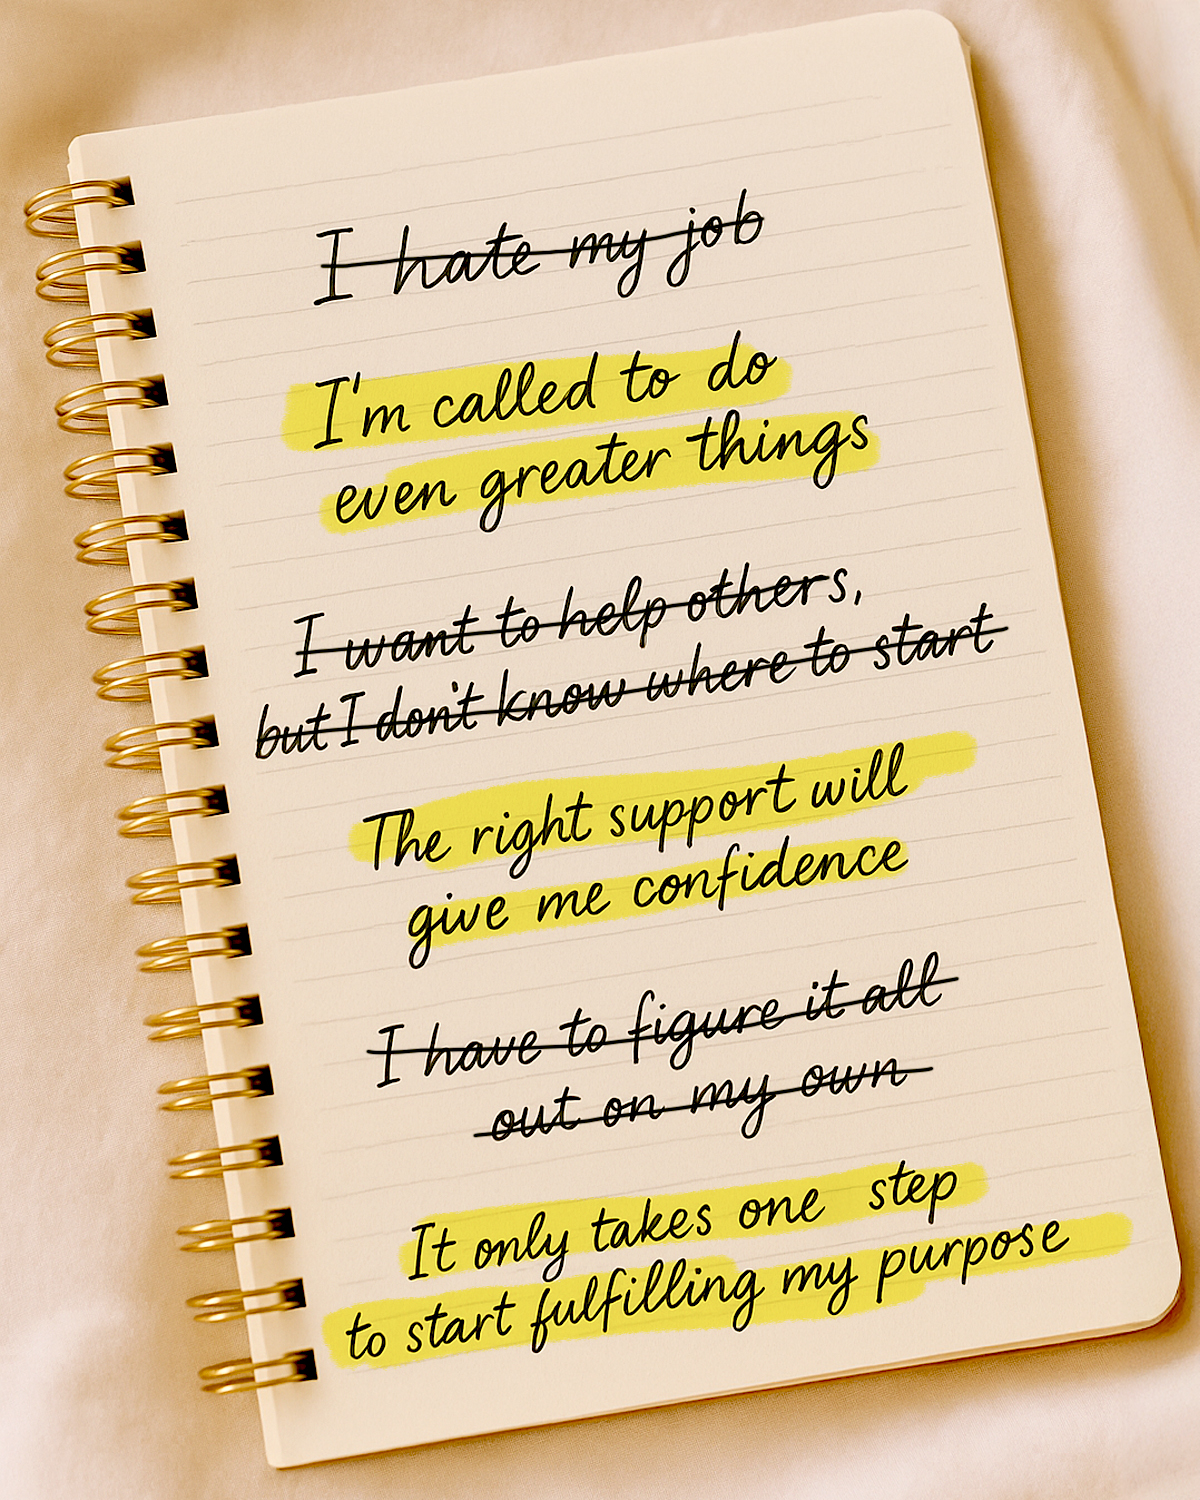 I hate my job
I'm called to do
even greater things
I want to help others,
but I don't know where to start
The right support will
give me confidence
I have to figure it all
out on my own
It only takes one step
to start fulfilling my purpose